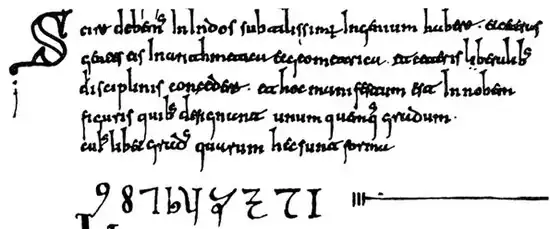 Scire debemˢ In Indos subtilissimum Ingenium habere. et ceteras
gentes eis In arithmetica et geometrica. et ceteris liberalibˢ
disciplinis concedere. et hoc manifestum est In nobem
figuris quibˢ designant unum quemqˢ gradum.
cuiˢlibet gradˢ quarum hec sunt forma
9 8 7 6 5 4 3 2 1